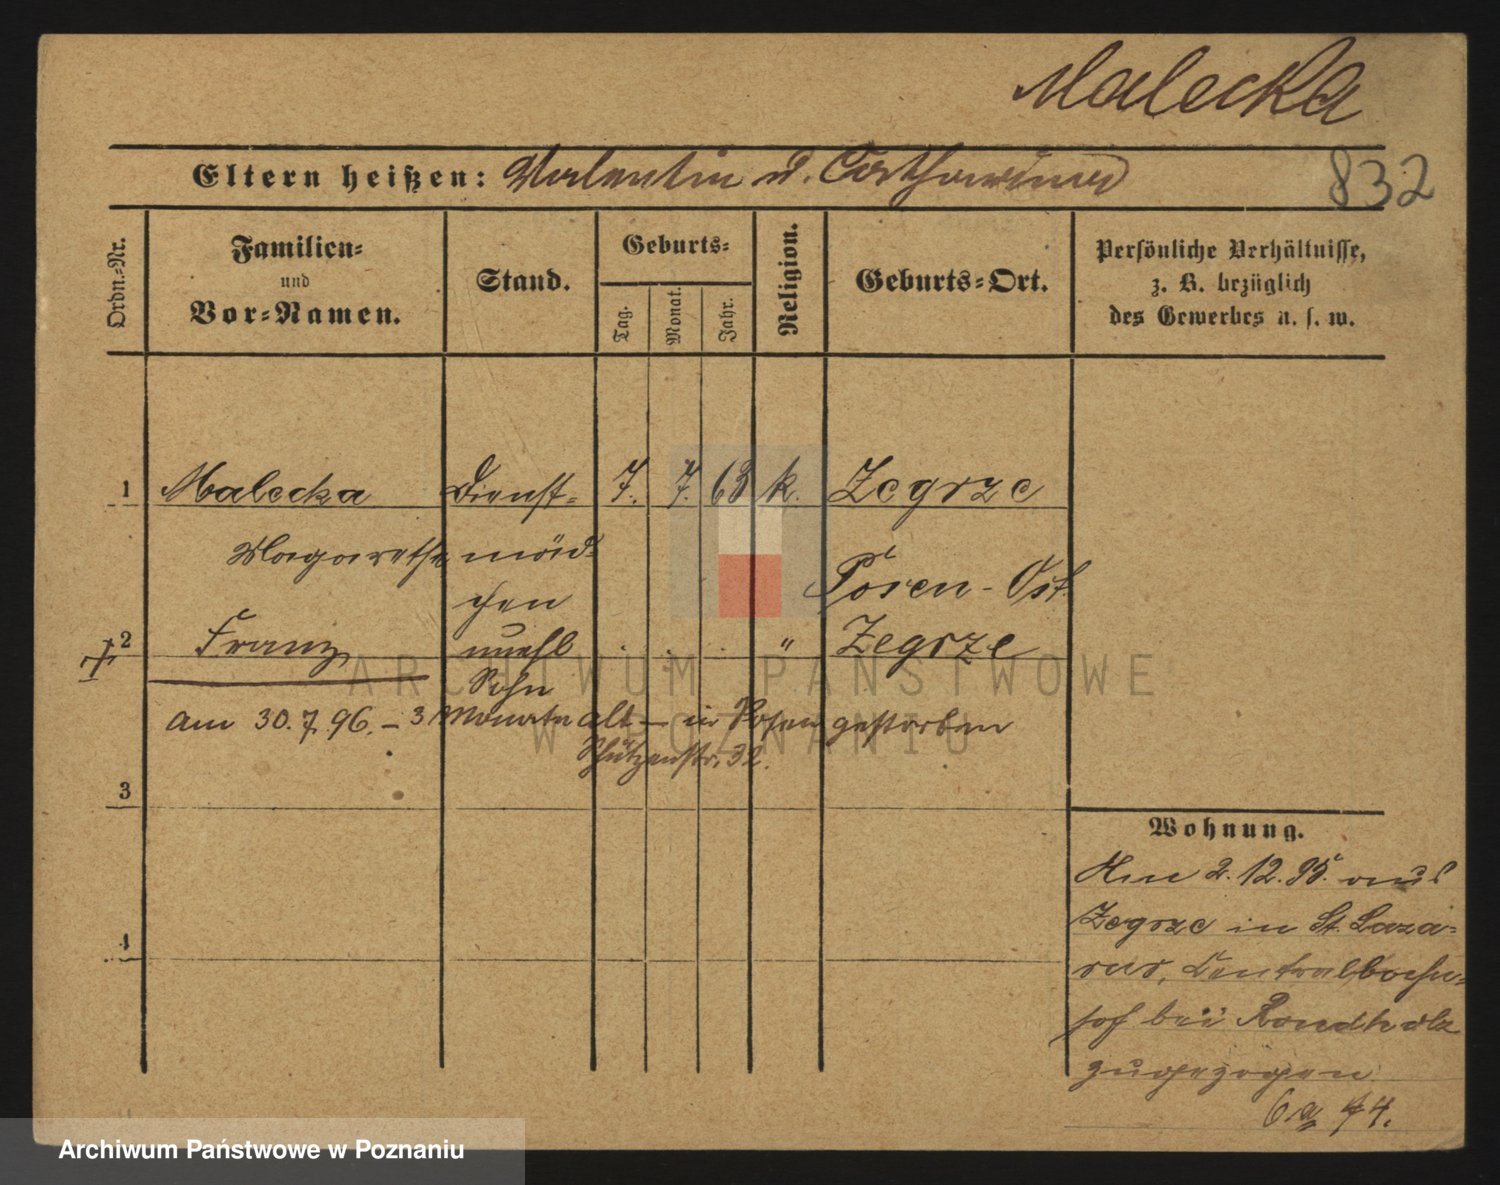 Malecka
832
Eltern heißen: Valentin u. Catharina
Ordn.-Nr.
Familien-
und
Vor-Namen.
Stand.
Geburts-
Tag.
Monat.
Jahr.
Religion.
Geburts-Ort.
Persönliche Verhältnisse,
z. B. bezüglich
des Gewerbes u. s. w.
1 Malecka Dienst- 7. 7. 63 k. Zegrze
Magarethe mäd-
chen Posen-Ost.
2 Franz unehl " Zegrze
Sohn
am 30.7.96. – 3 Monate alt – in Posen gestorben
Schützenstr. 32.
3
4
Wohnung.
Am 2.12.95. aus
Zegrze in St. Laza-
rus, Centralbahn-
hof bei
zugezogen
44.
ARCHIWUM PAŃSTWOWE
W POZNANIU
Archiwum Państwowe w Poznaniu